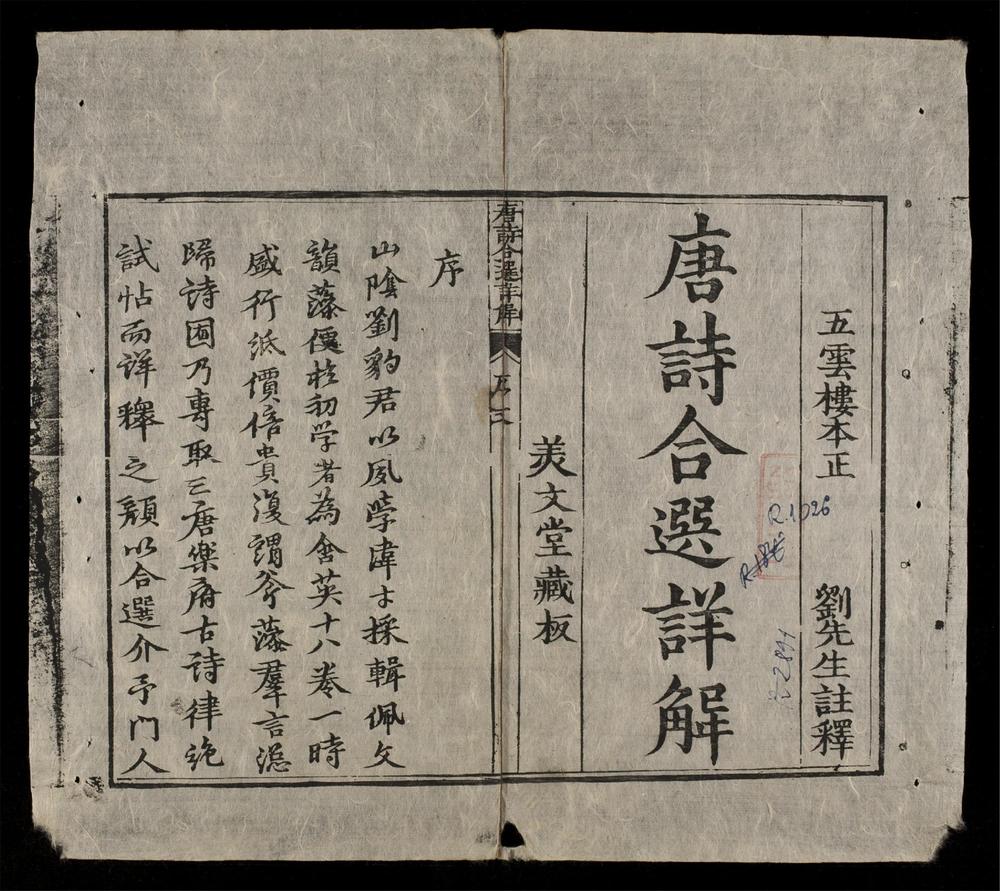 五雲樓本正 劉先生註釋
唐詩合選詳解
美文堂藏板
R.1026
R.2891
唐詩合選詳解
序
山陰劉豹君以夙學瑋才採輯佩文
韻藻便於初学者為含英十八卷一時
盛行紙價倍貴復謂芥藻羣言總
歸詩囿乃專取三唐樂府古诗律绝
試帖而详釋之顏以合選介予门人